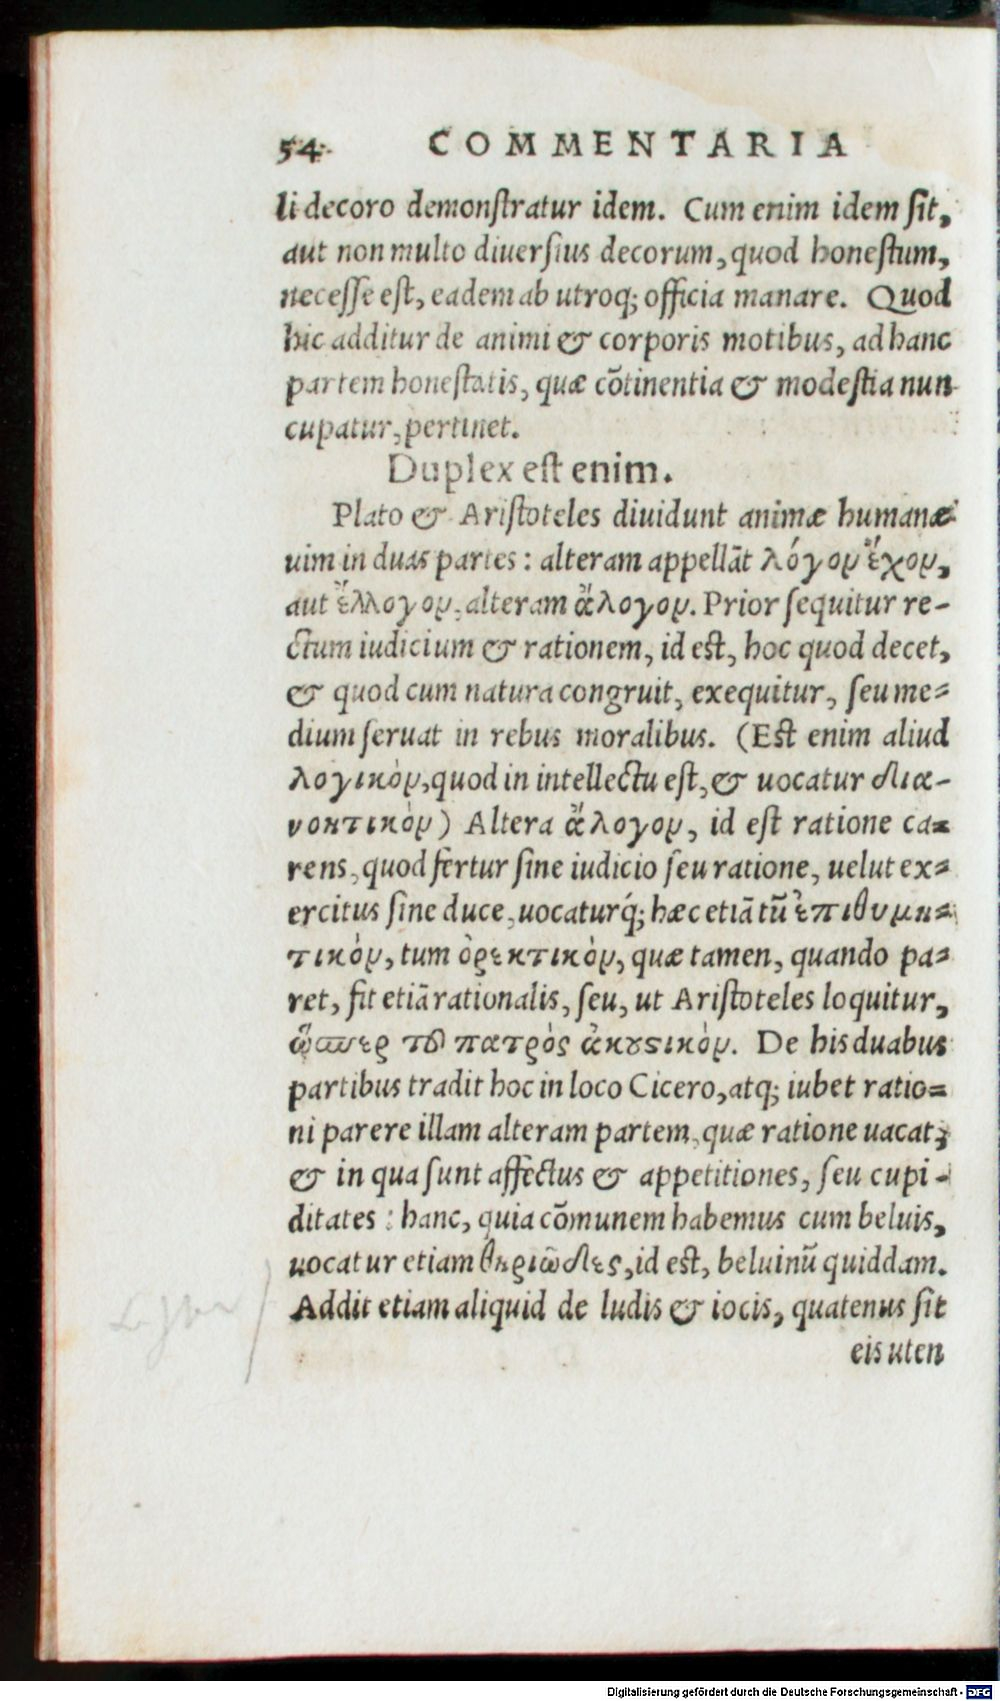 54 COMMENTARIA
li decoro demonſtratur idem. Cum enim idem ſit,
aut non multo diuerſius decorum, quod honeſtum,
neceſſe eſt, eadem ab utroq; officia manare. Quod
hic additur de animi & corporis motibus, ad hanc
partem honeſtatis, quæ cōtinentia & modeſtia nun
cupatur, pertinet.
Duplex eſt enim.
Plato & Ariſtoteles diuidunt animæ humanæ
uim in duas partes : alteram appellāt λόγον ἔχον,
aut ἔλλογον, alteram ἄλογον. Prior ſequitur re-
ctum iudicium & rationem, id eſt, hoc quod decet,
& quod cum natura congruit, exequitur, ſeu me=
dium ſeruat in rebus moralibus. (Eſt enim aliud
λογικὸν, quod in intellectu eſt, & uocatur δια-
νοητικὸν) Altera ἄλογον, id eſt ratione ca=
rens, quod fertur ſine iudicio ſeu ratione, uelut ex=
ercitus ſine duce, uocaturq́; hæc etiā tū ἐπιθυμη=
τικὸν, tum ὀρεκτικὸν, quæ tamen, quando pa=
ret, fit etiā rationalis, ſeu, ut Ariſtoteles loquitur,
ὥσπερ τοῦ πατρὸς ἀκουστικὸν. De his duabus
partibus tradit hoc in loco Cicero, atq; iubet ratio=
ni parere illam alteram partem, quæ ratione uacat,
& in qua ſunt affectus & appetitiones, ſeu cupi-
ditates : hanc, quia cōmunem habemus cum beluis,
uocatur etiam θηριῶδες, id eſt, beluinū quiddam.
Addit etiam aliquid de ludis & iocis, quatenus ſit
eis uten
Digitalisierung gefördert durch die Deutsche Forschungsgemeinschaft - DFG